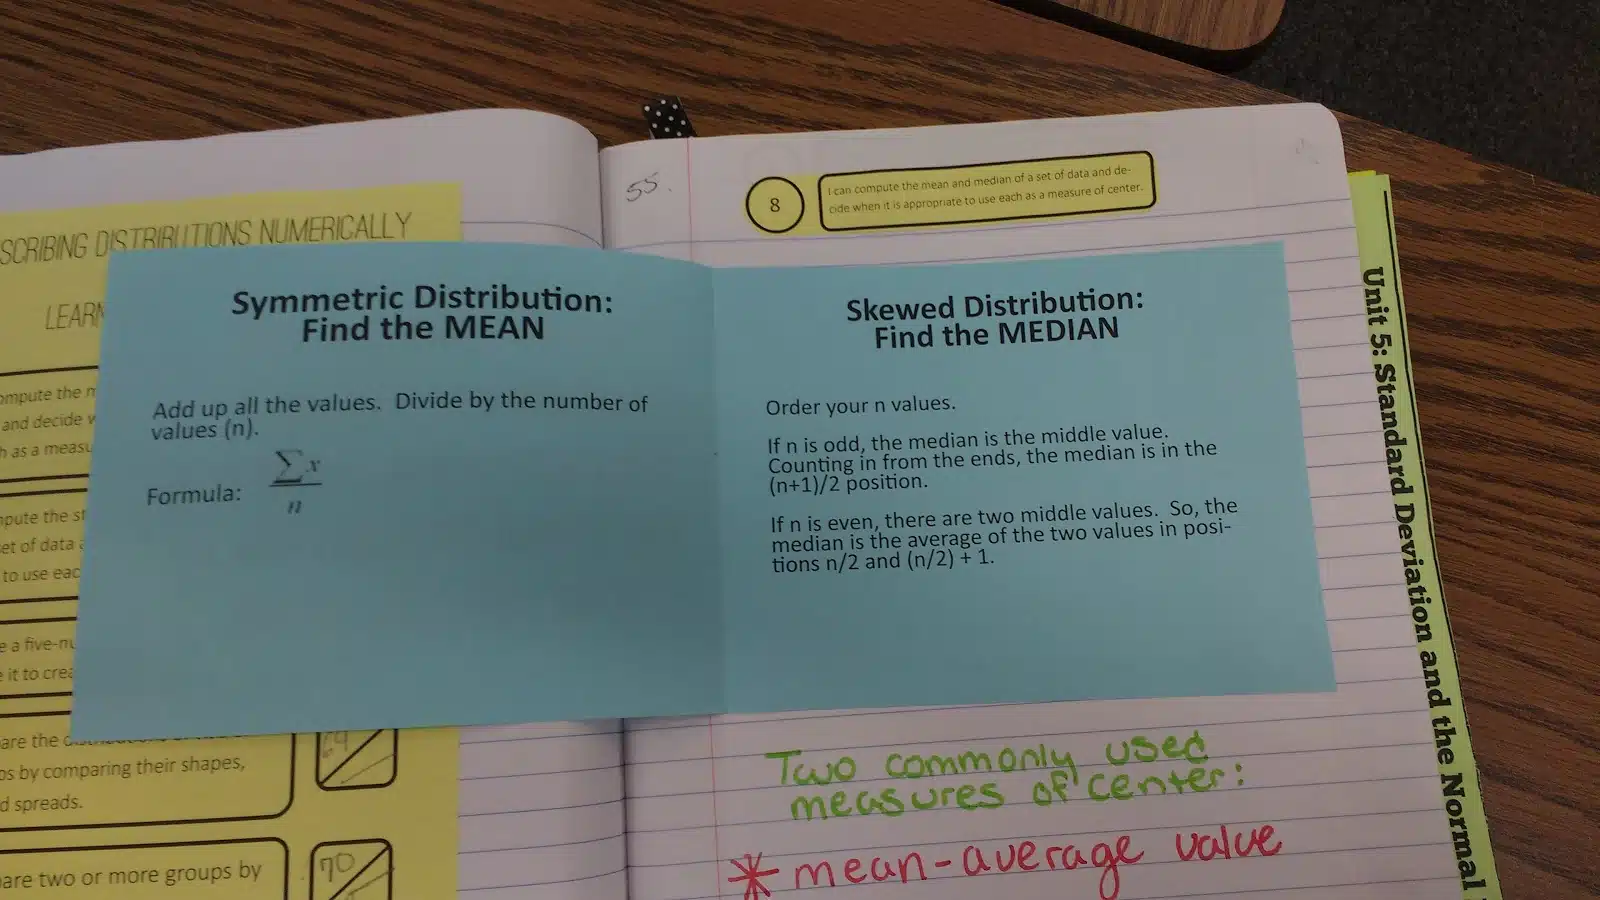 SCRIBING DISTRIBUTIONS NUMERICALLY
LEARN
mpute the m
and decide w
h as a measu
mpute the st
set of data a
to use eac
e a five-nu
it to crea
are the
ps by comparing their shapes,
d spreads.
are two or more groups by
70
Symmetric Distribution:
Find the MEAN
Add up all the values. Divide by the number of
values (n).
Formula: ∑x
n
55.
8
I can compute the mean and median of a set of data and de-
cide when it is appropriate to use each as a measure of center.
Skewed Distribution:
Find the MEDIAN
Order your n values.
If n is odd, the median is the middle value.
Counting in from the ends, the median is in the
(n+1)/2 position.
If n is even, there are two middle values. So, the
median is the average of the two values in posi-
tions n/2 and (n/2) + 1.
Two commonly used
measures of center:
* mean-average value
Unit 5: Standard Deviation and the Normal